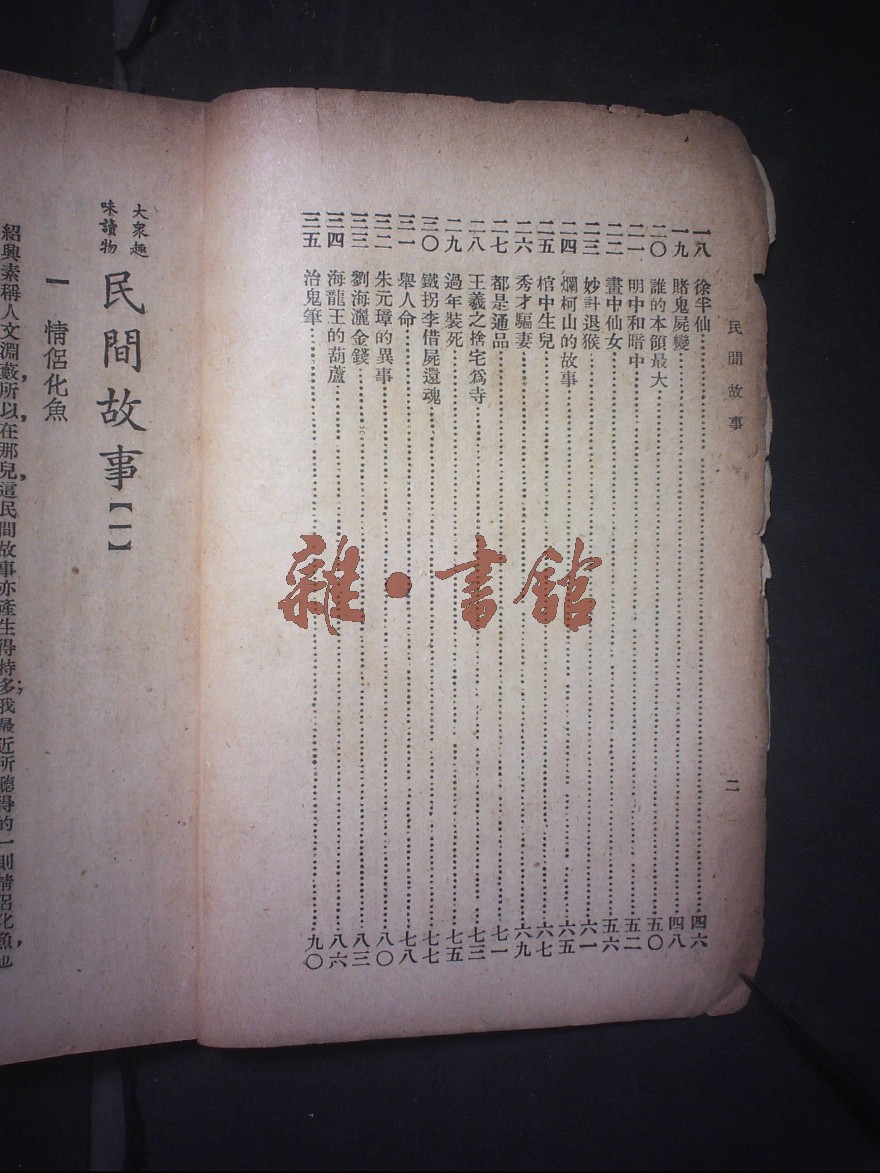 民間故事
二
一八 徐半仙 四六
一九 賭鬼屍變 四八
二〇 誰的本領最大 五〇
二一 明中和暗中 五二
二二 畫中仙女 五六
二三 妙計退猴 六一
二四 爛柯山的故事 六五
二五 棺中生兒 六七
二六 秀才騙妻 六九
二七 都是通品 七一
二八 王羲之捨宅爲寺 七三
二九 過年裝死 七五
三〇 鐵拐李借屍還魂 七七
三一 舉人命 七八
三二 朱元璋的異事 八〇
三三 劉海灑金錢 八三
三四 海龍王的葫蘆 八六
三五 治鬼筆 九〇
雜·書館
大衆趣
味讀物
民間故事【一】
一 情侶化魚
紹興素稱人文淵藪,所以,在那兒,這民間故事亦產生得特多;我最近所聽得的一則情侶化魚,也